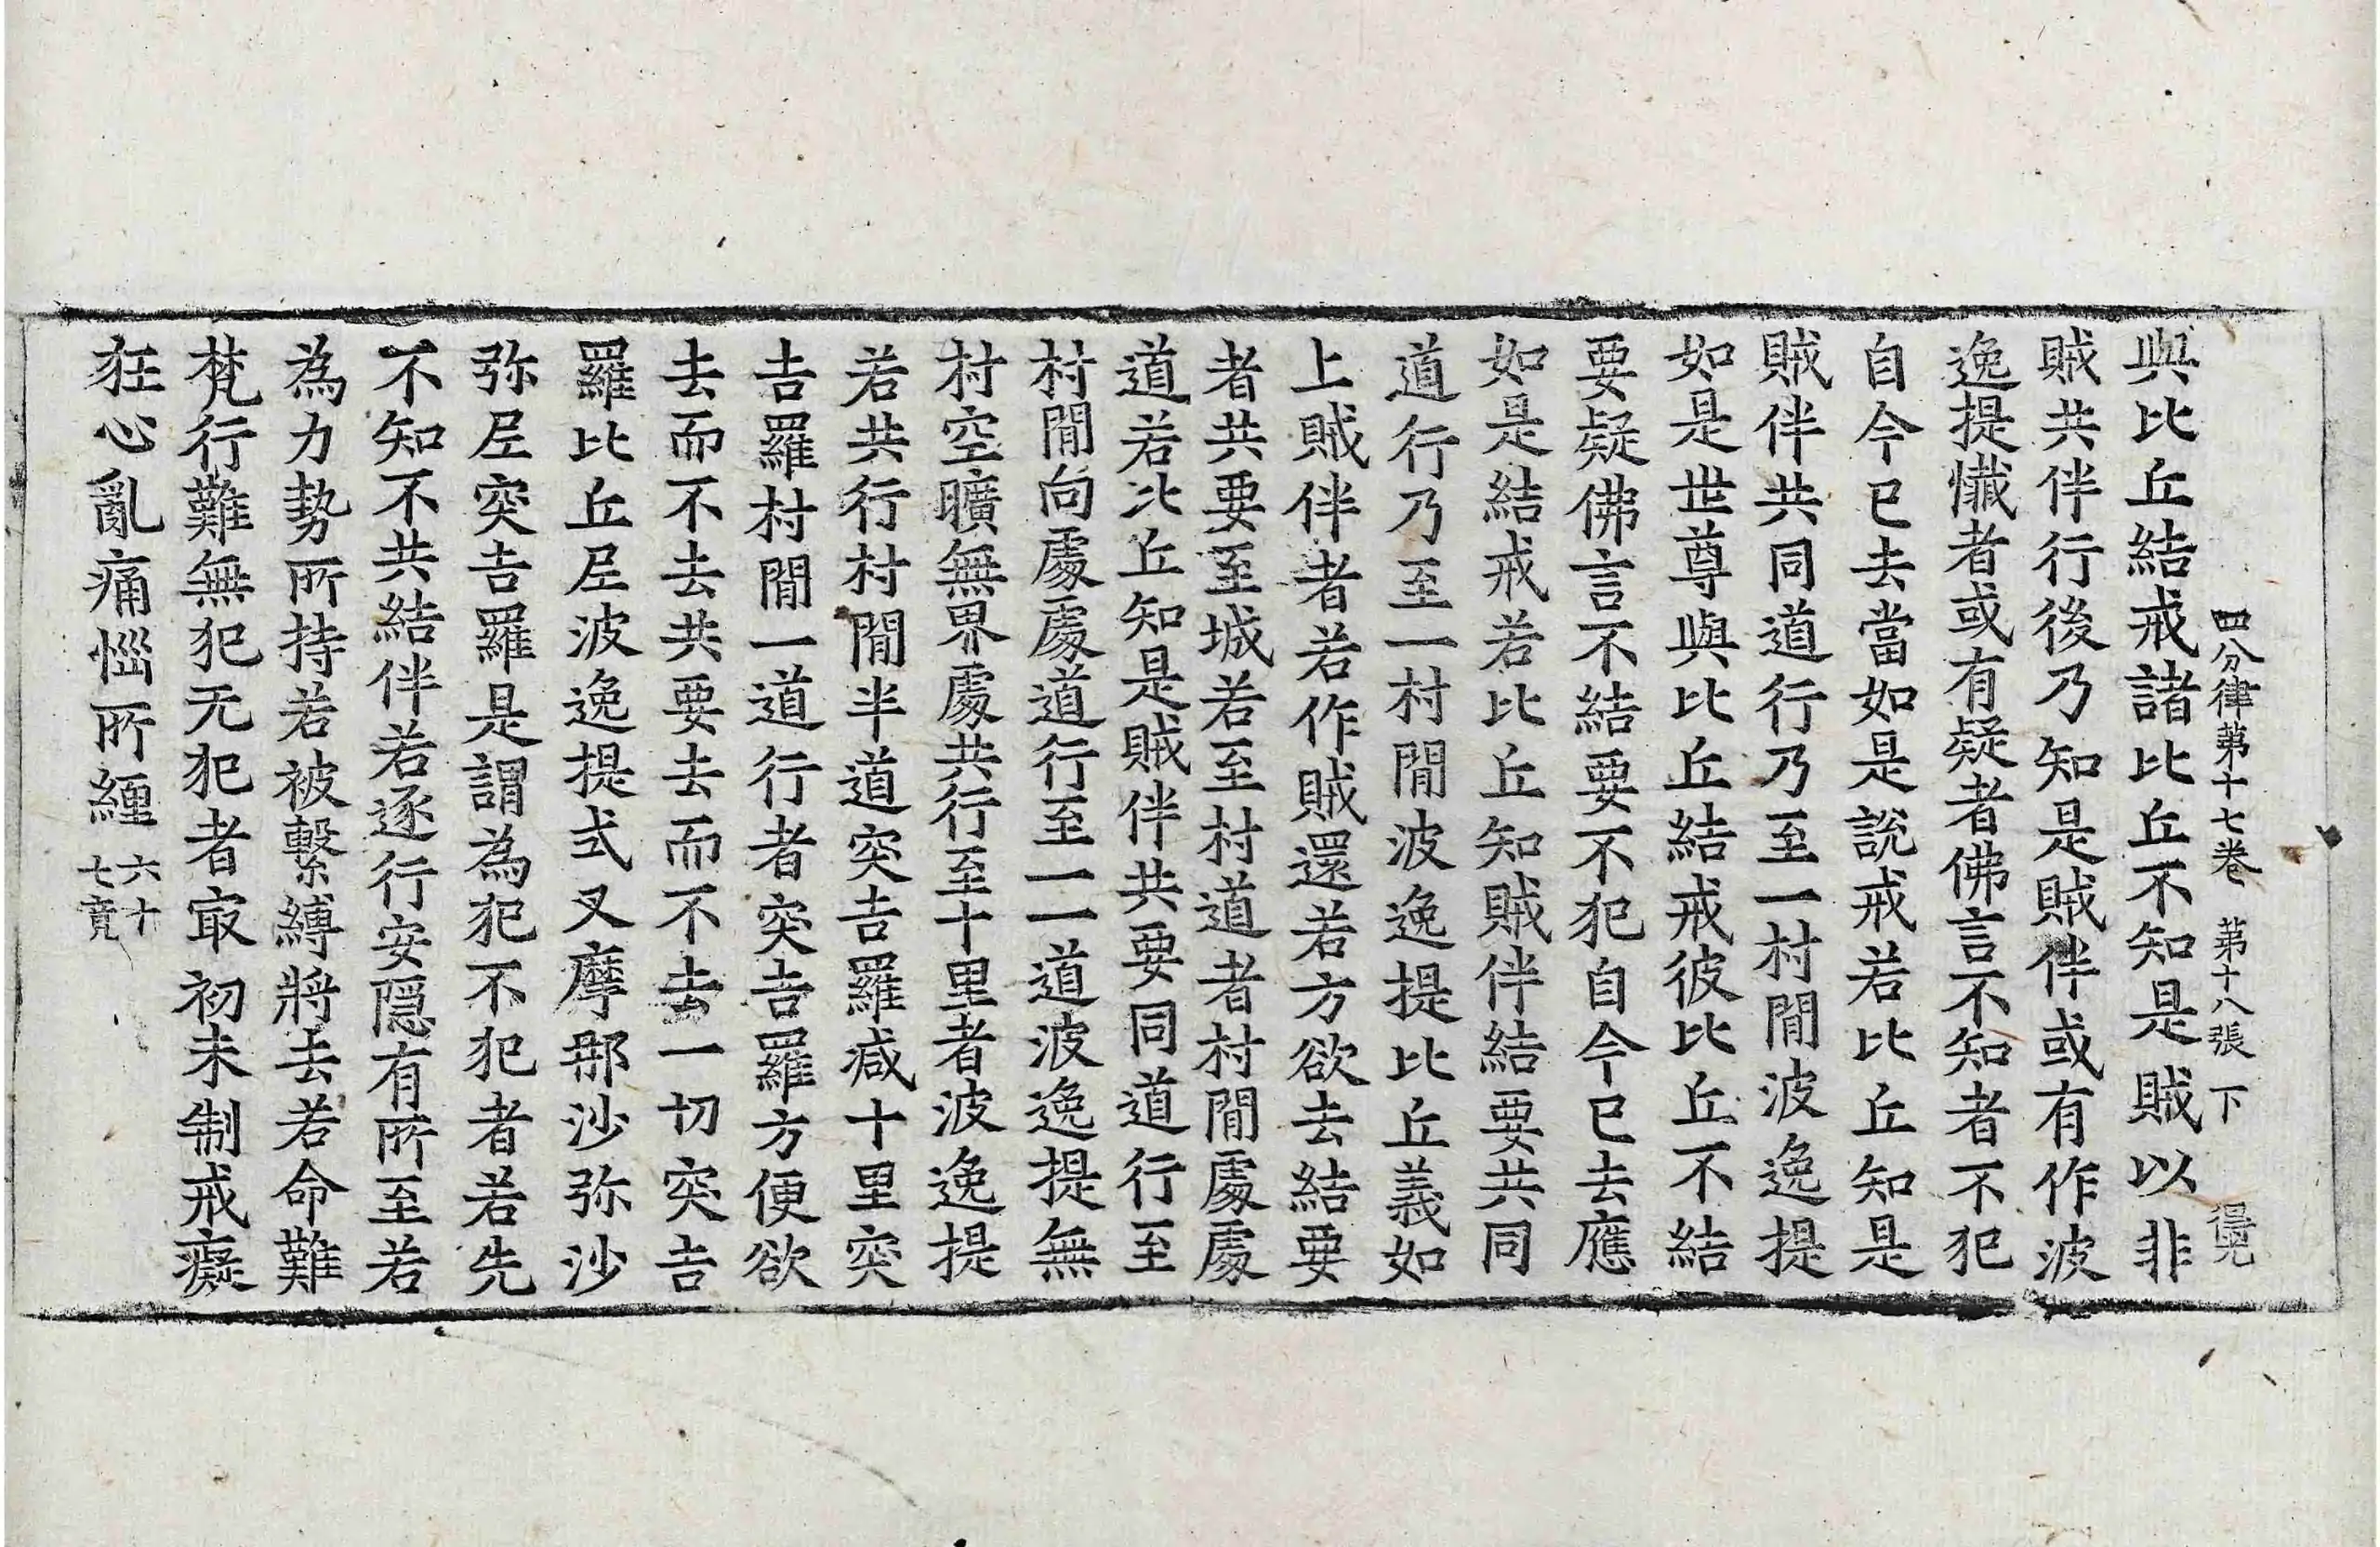 四分律第十七卷 第十八張 下
與比丘結戒諸比丘不知是賊以非
賊共伴行後乃知是賊伴或有作波
逸提懺者或有疑者佛言不知者不犯
自今已去當如是說戒若比丘知是
賊伴共同道行乃至一村閒波逸提
如是世尊與比丘結戒彼比丘不結
要疑佛言不結要不犯自今已去應
如是結戒若比丘知賊伴結要共同
道行乃至一村閒波逸提比丘義如
上賊伴者若作賊還若方欲去結要
者共要至城若至村道者村閒處處
道若比丘知是賊伴共要同道行至
村閒向處處道行至一一道波逸提無
村空曠無界處共行至十里者波逸提
若共行村閒半道突吉羅减十里突
吉羅村閒一道行者突吉羅方便欲
去而不去共要去而不去一切突吉
羅比丘尼波逸提式叉摩那沙弥沙
弥尼突吉羅是謂為犯不犯者若先
不知不共結伴若逐行安隱有所至若
為力勢所持若被繫縛將去若命難
梵行難無犯无犯者㝡初未制戒癡
狂心亂痛惱所纏 六十七竟